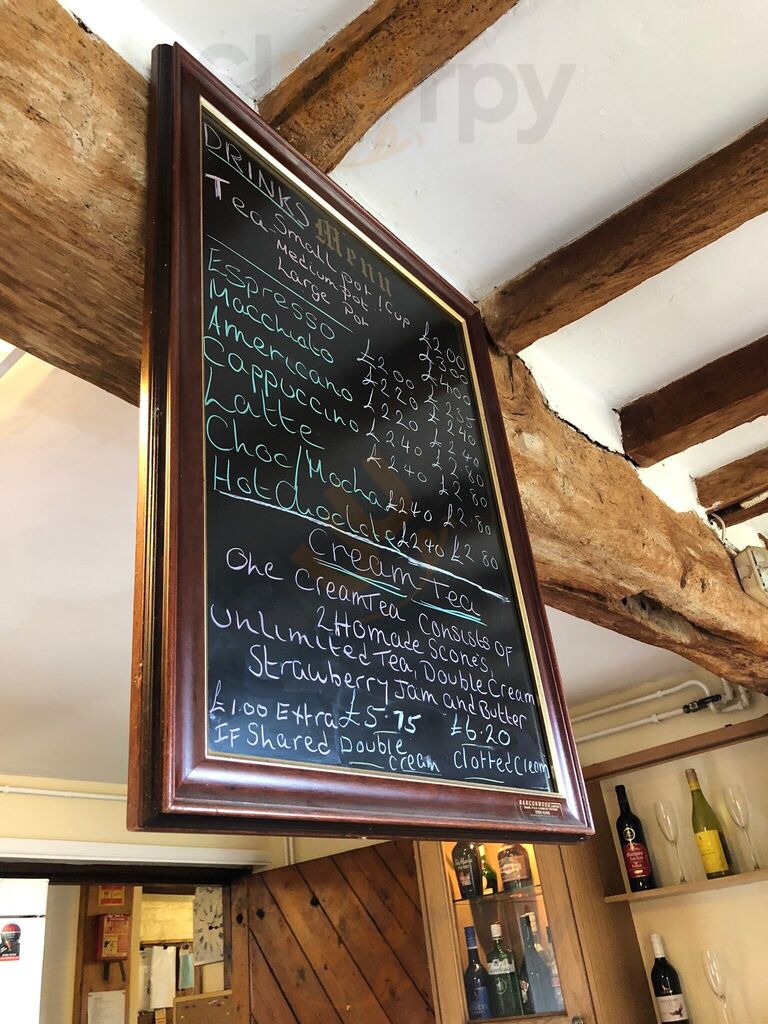 DRINKS Menu
Tea Small pot / Cup £2.00
Medium pot £3.00
Large Pot £4.00
Espresso £2.00 £2.35
Macchiato £2.20 £2.40
Americano £2.20 £2.40
Cappuccino £2.40 £2.80
Latte £2.40 £2.80
Choc/Mocha £2.40 £2.80
Hot Choclate £2.40 £2.80
Cream Tea
One CreamTea Consists of
2 Homade Scones,
Unlimited Tea, Double Cream
Strawberry Jam and Butter
£1.00 Extra £5.75 £6.20
IF Shared Double cream Clotted Cream